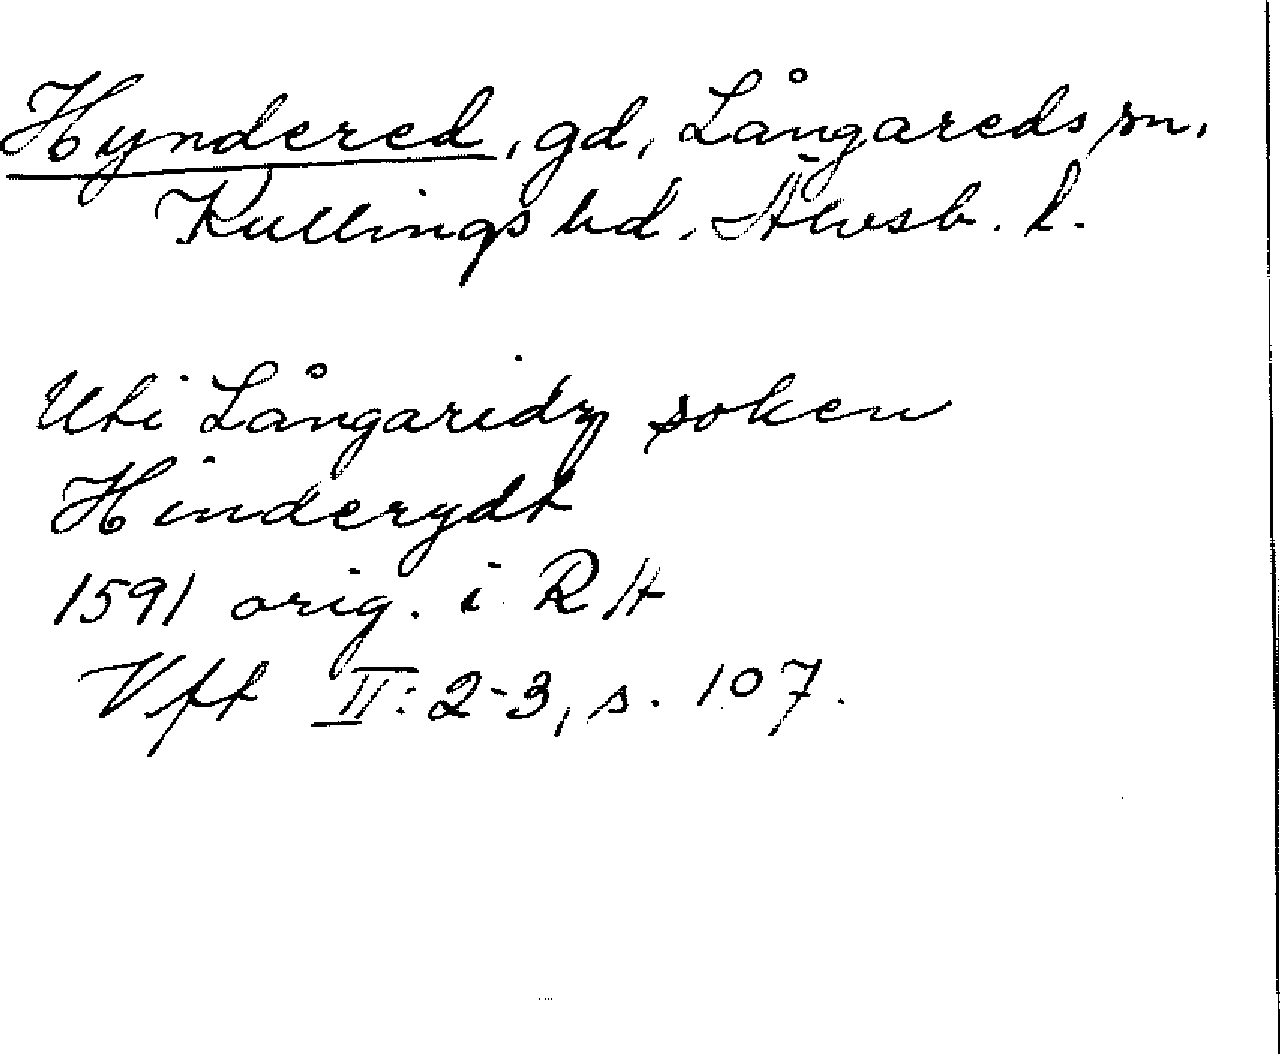 Hyndered, gd, Långareds sn,
Kullings hd, Älvsb. l.
Uti Långaridz soken
Hinderydt
1591 orig. i RA
Vft II: 2-3, s. 107.